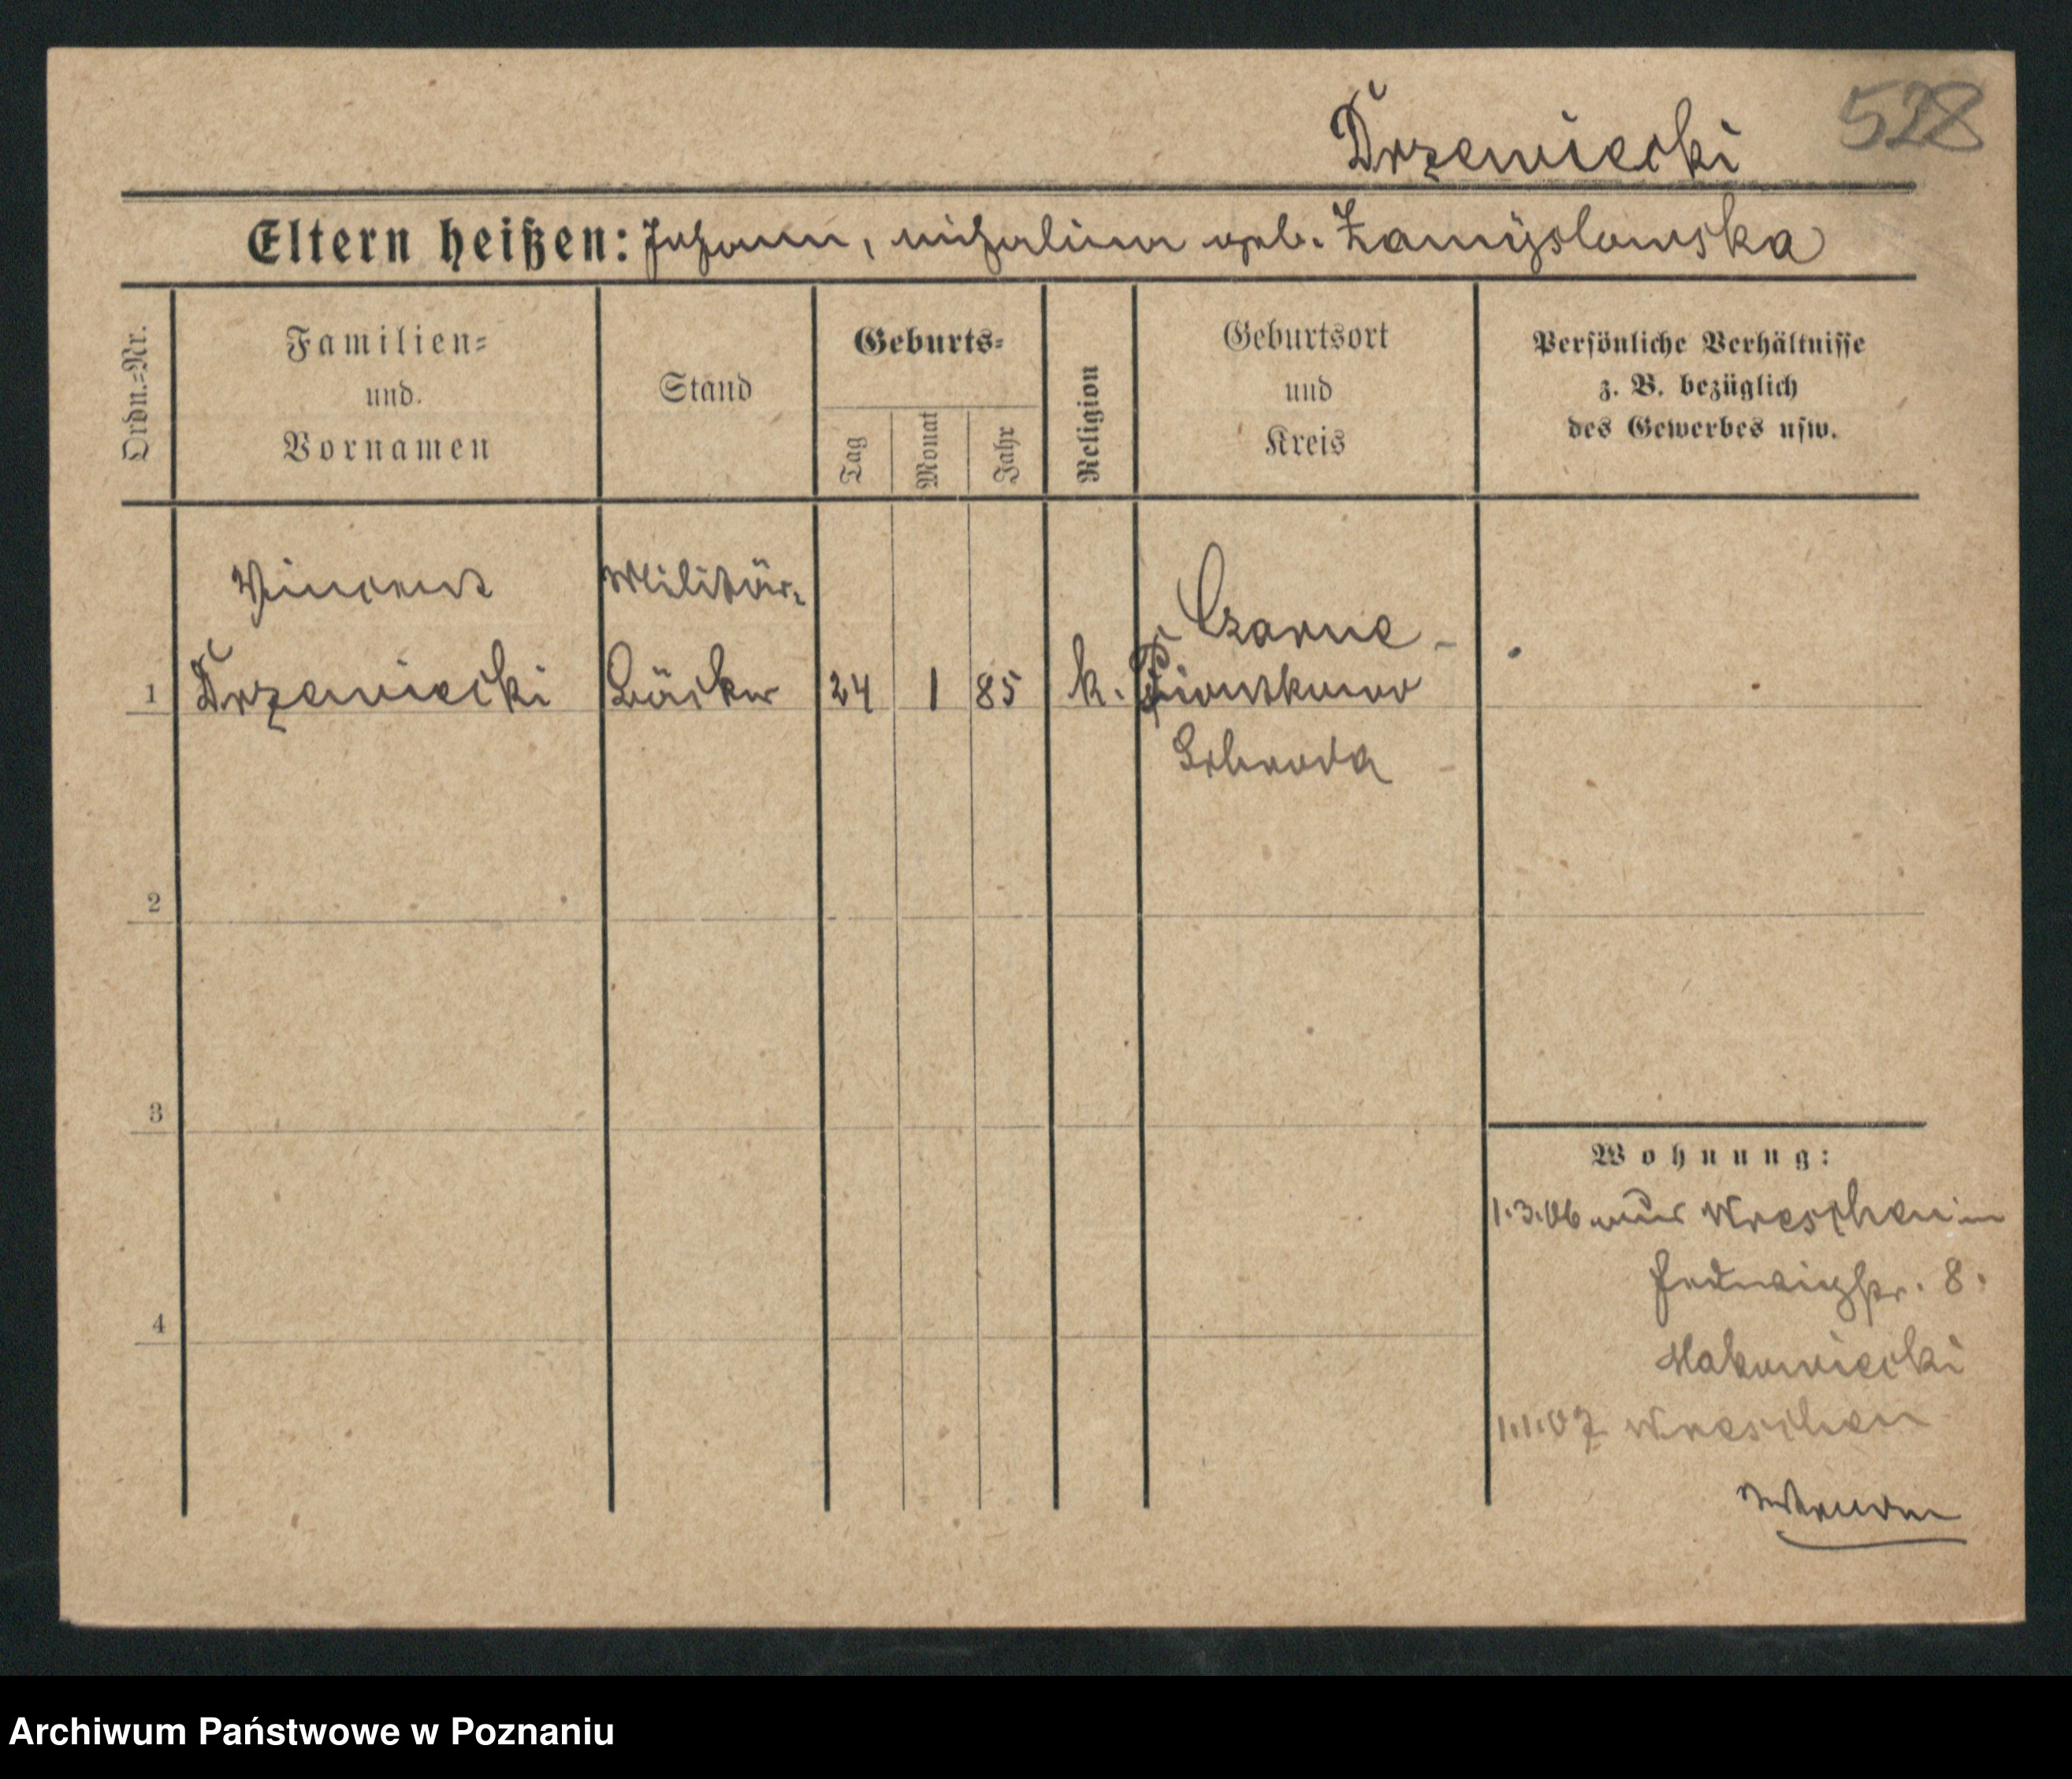 528
Drzewiecki
Eltern heißen: Johann, Michalina geb. Zamyslowska
Ordn.=Nr.
Familien=
und
Vornamen
Stand
Geburts=
Tag
Monat
Jahr
Religion
Geburtsort
und
Kreis
Persönliche Verhältnisse
z. B. bezüglich
des Gewerbes usw.
Vincent Militär-
Czarne-
1 Drzewiecki Bäcker 24 1 85 k. Piontkowo
Schroda
2
3
4
Wohnung:
1.3.06 aus Wreschen in
Hedwigstr. 8.
Makowiecki
1.1.07 Wreschen
Archiwum Państwowe w Poznaniu